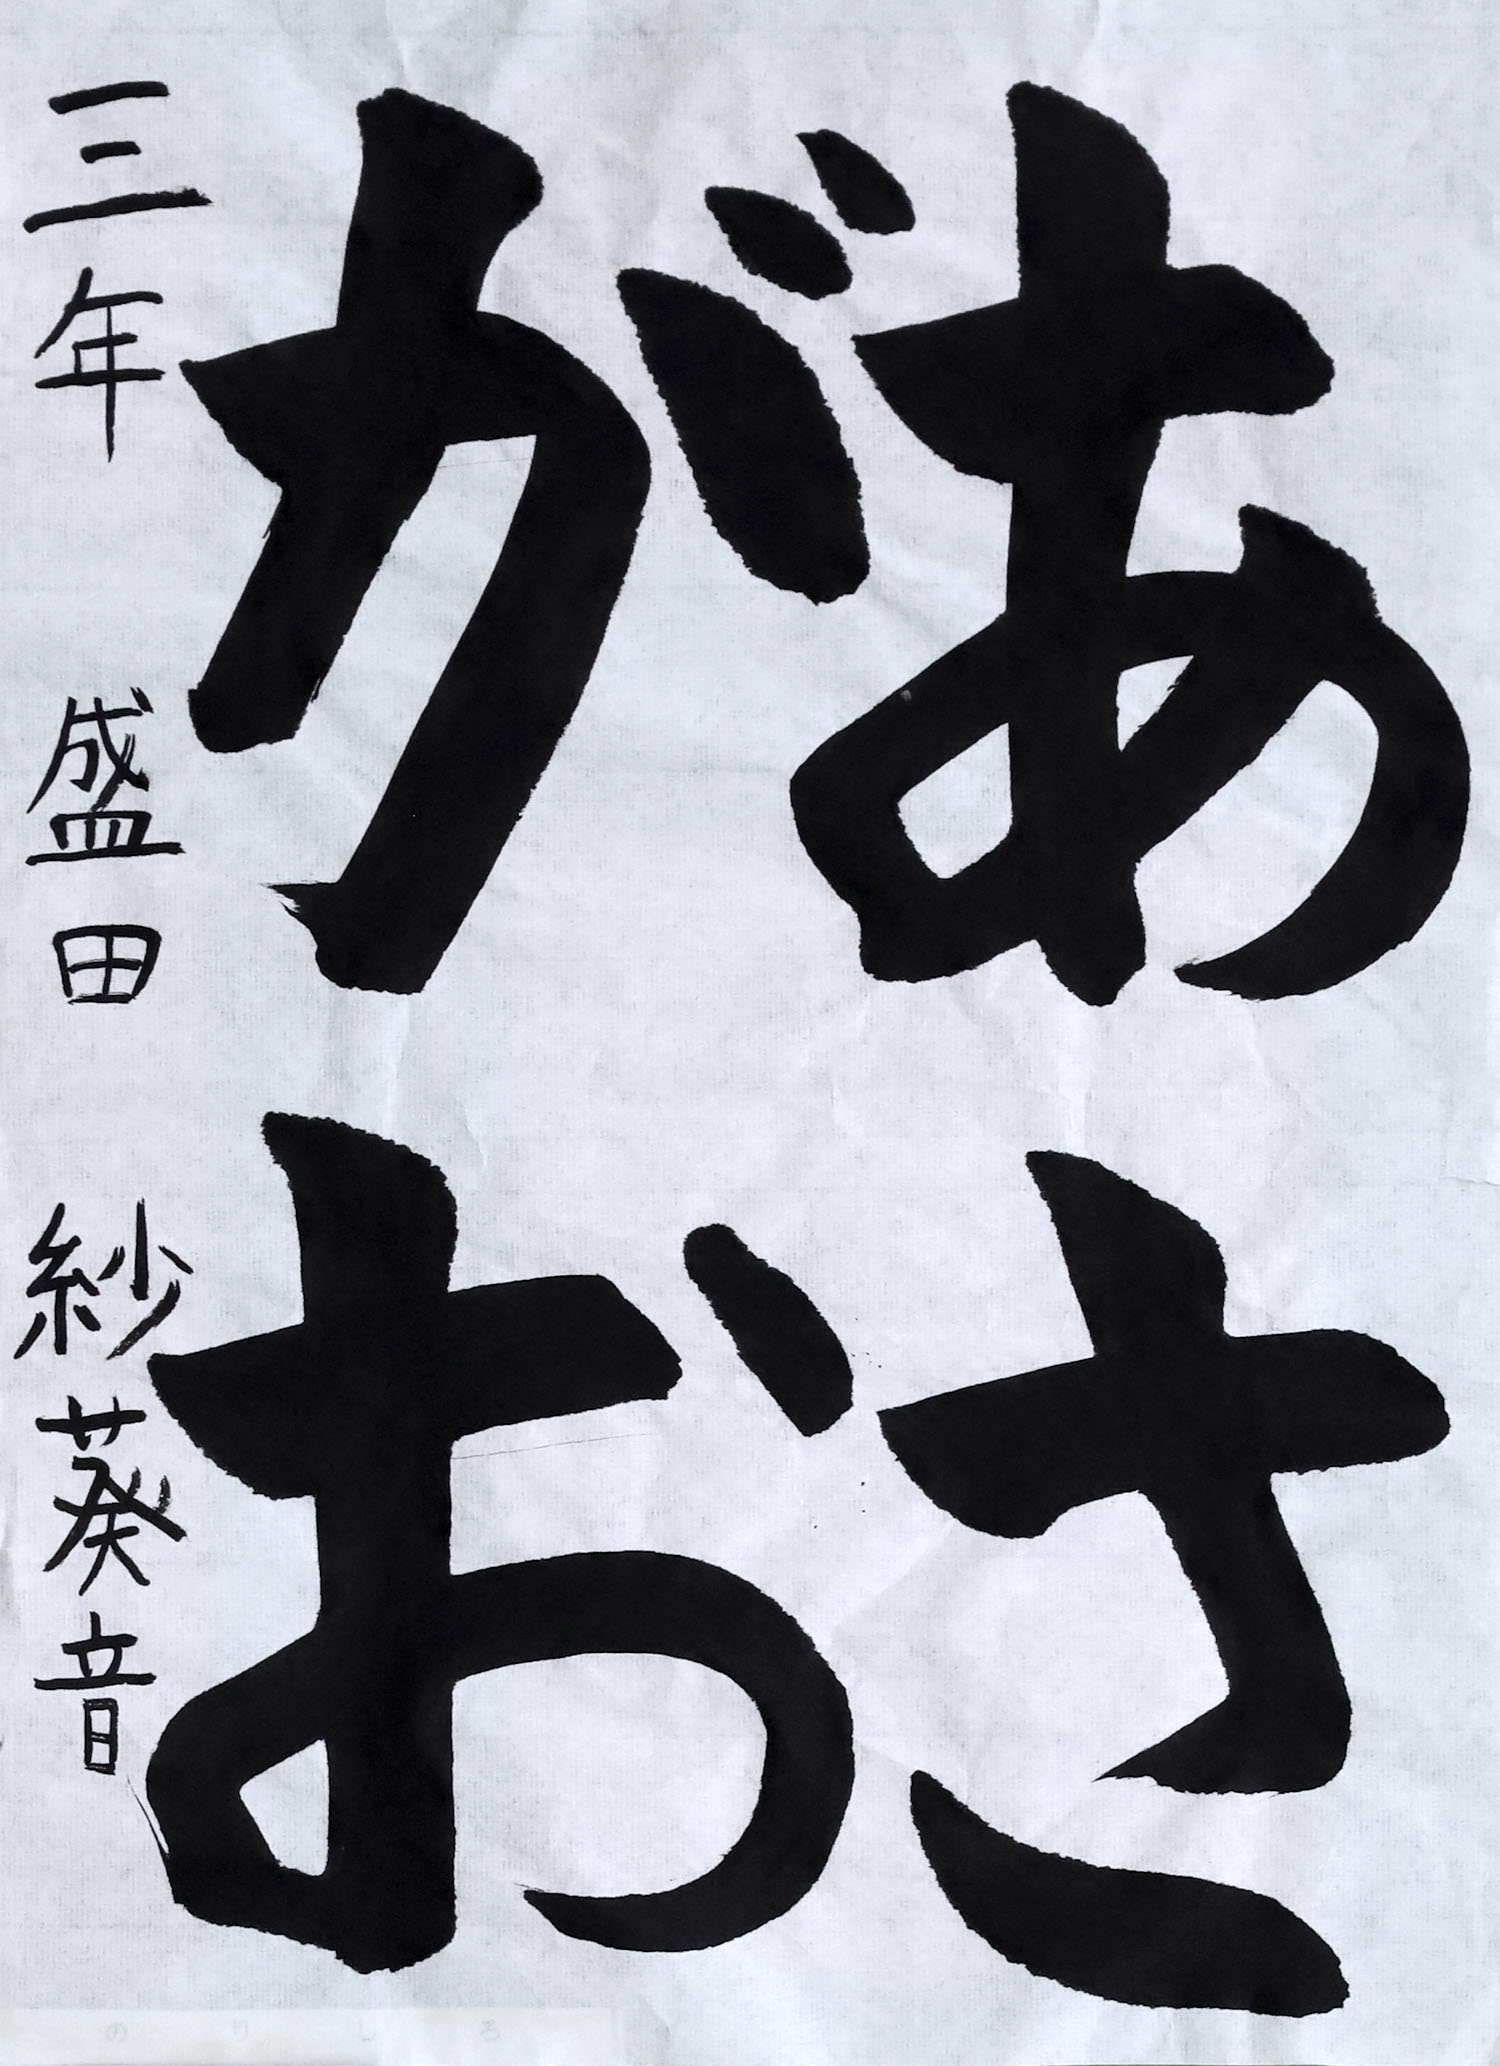 あさ
がお
三年 盛田 紗葵音
のりしろ